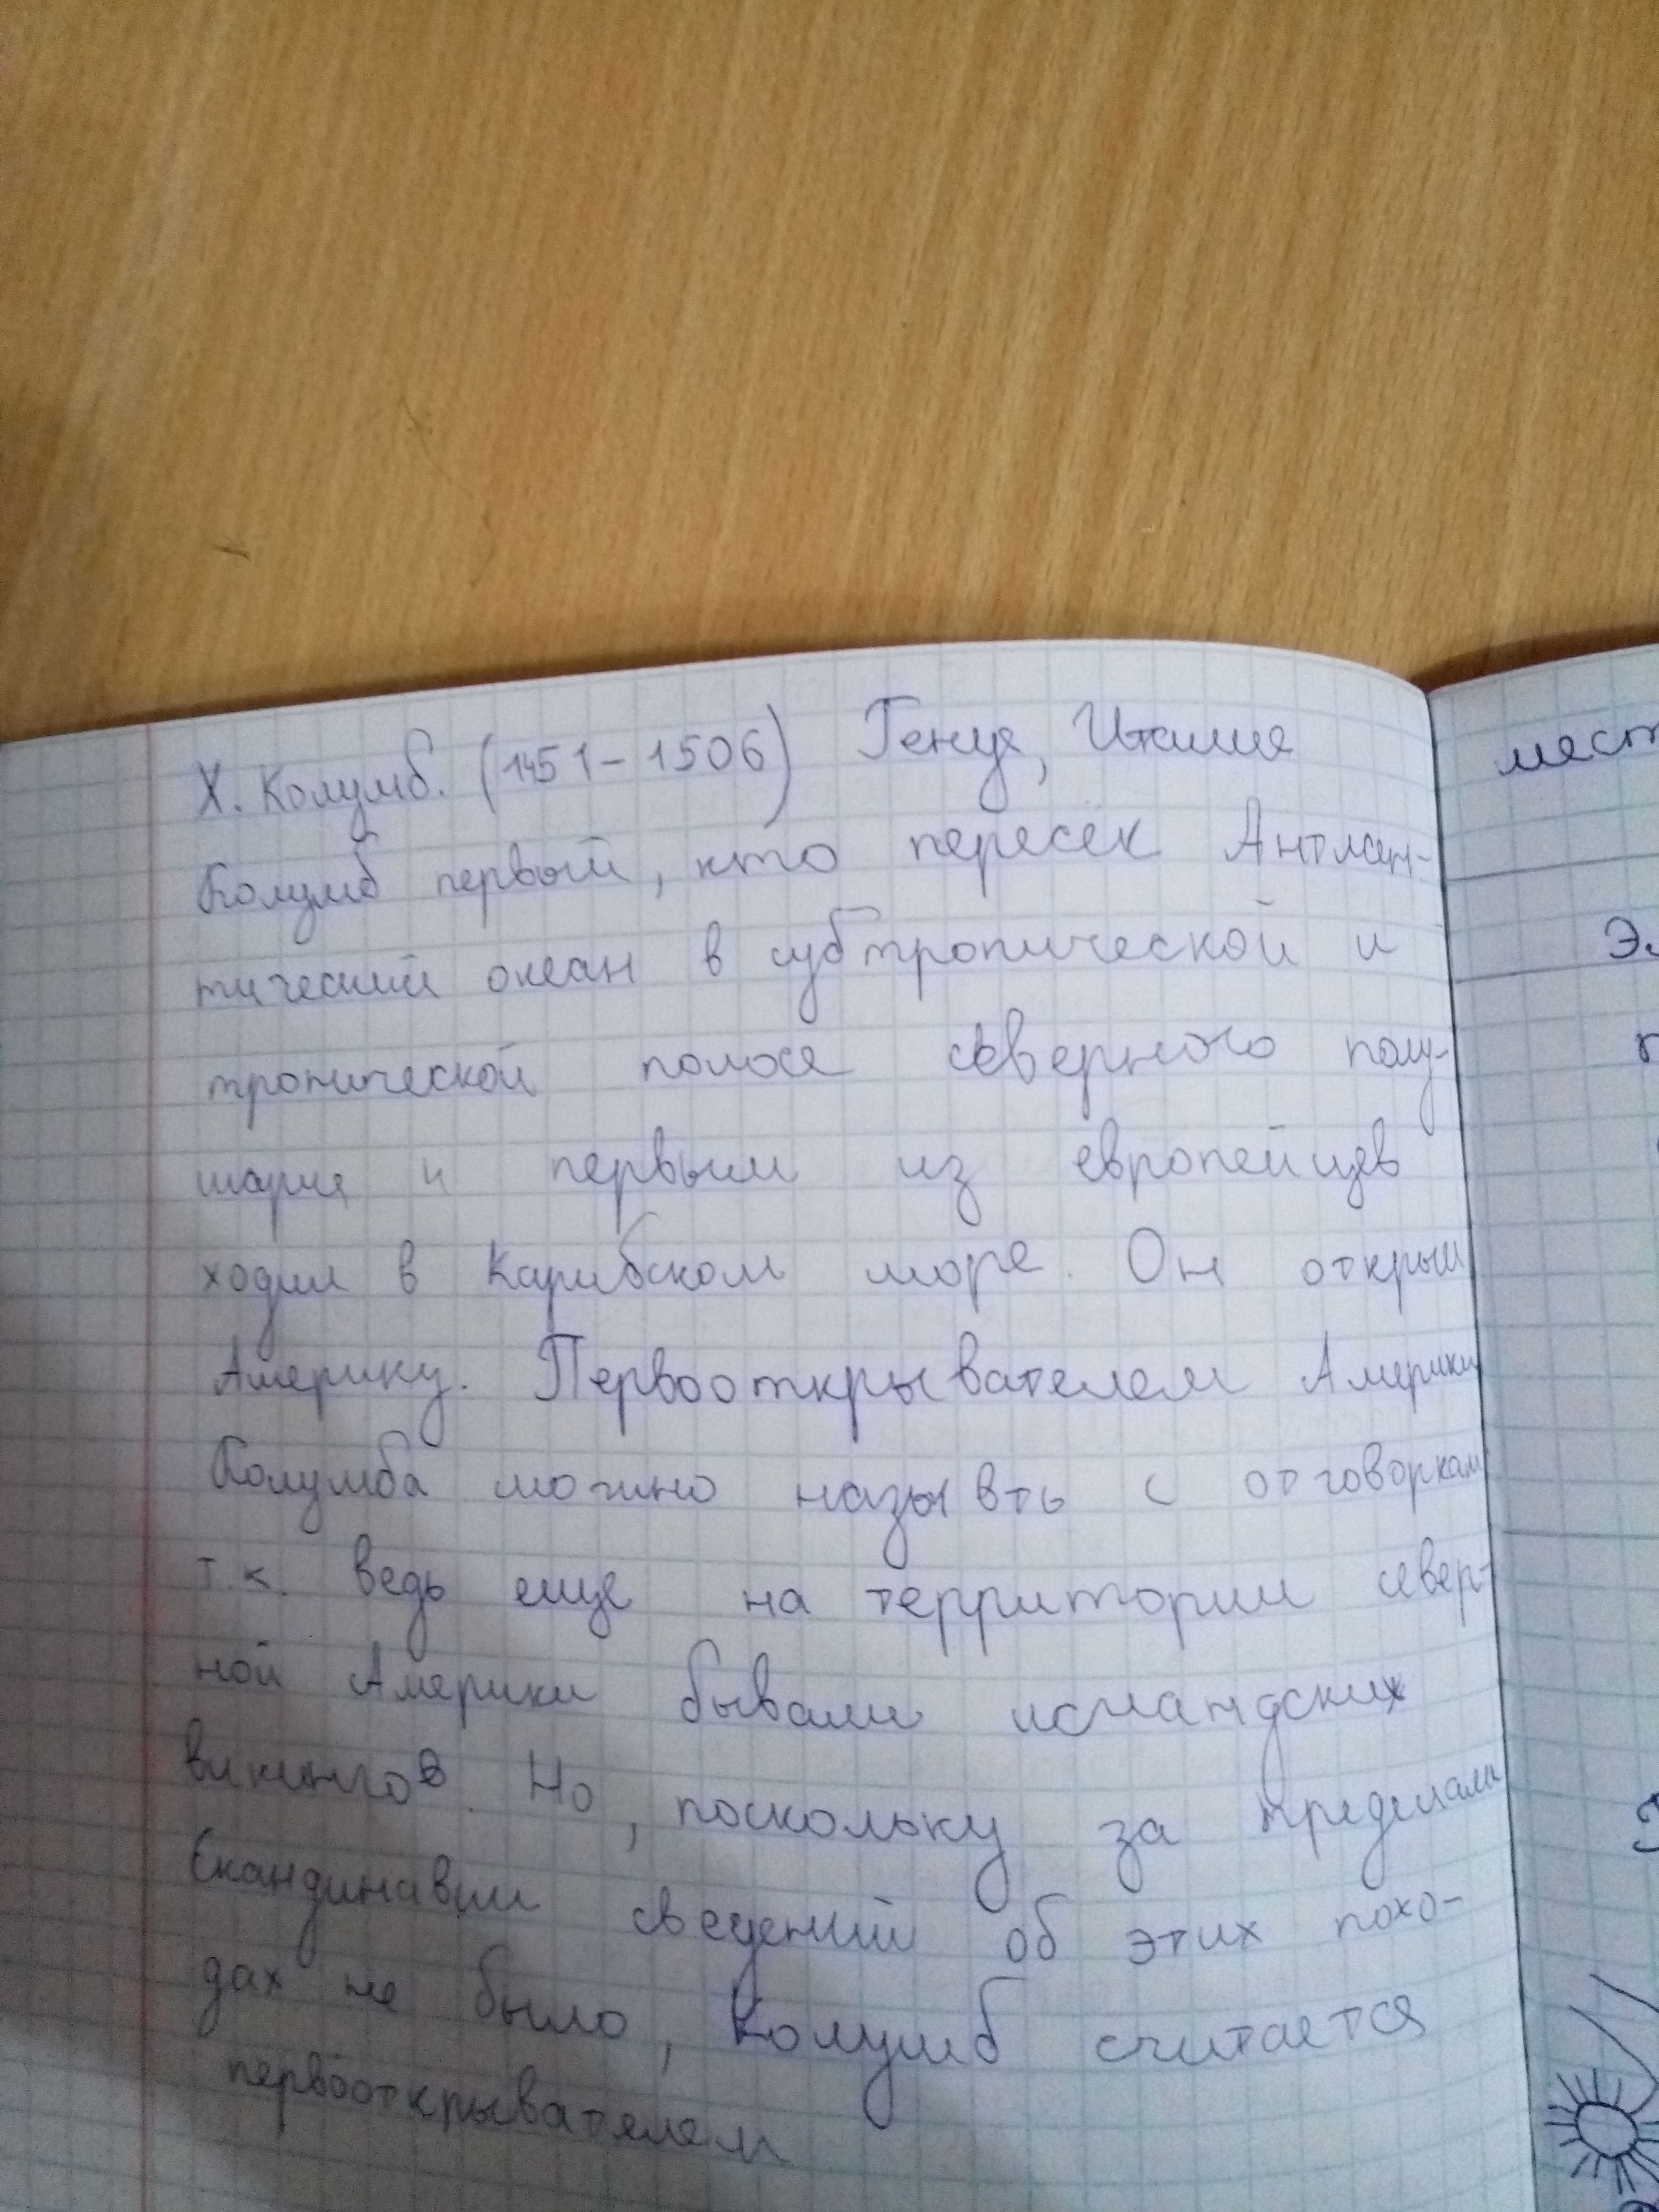 Х. Колумб. (1451-1506) Генуя, Италия
Колумб первый, кто пересёк Антлан-
тический океан в субтропической и
тропической полосе северного полу-
шария и первым из европейцев
ходил в Карибском море. Он открыл
Америку. Первооткрывателем Америки
Колумба можно назывть с отговоркам
т.к. ведь еще на территории север-
ной Америки бывали исландских
викингов. Но, поскольку за пределами
Скандинавии сведений об этих похо-
дах не было, Колумб считается
первооткрывателем
мест
Эл